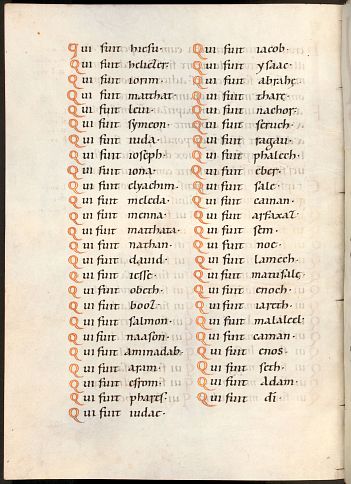 Qui fuit hiesu·
Qui fuit helieler·
Qui fuit iorim·
Qui fuit matthat·
Qui fuit leui·
Qui fuit symeon·
Qui fuit iuda·
Qui fuit ioseph·
Qui fuit iona·
Qui fuit elyachim·
Qui fuit meleda·
Qui fuit menna·
Qui fuit matthata·
Qui fuit nathan·
Qui fuit dauid·
Qui fuit iesse·
Qui fuit obeth·
Qui fuit booz·
Qui fuit salmon·
Qui fuit naason·
Qui fuit aminadab·
Qui fuit aram·
Qui fuit esrom·
Qui fuit phares·
Qui fuit iudae·
Qui fuit iacob·
Qui fuit ysaac·
Qui fuit abrahę·
Qui fuit tharę·
Qui fuit nachor·
Qui fuit seruch·
Qui fuit ragau·
Qui fuit phalech·
Qui fuit eber·
Qui fuit sale·
Qui fuit cainan·
Qui fuit arfaxat·
Qui fuit sem·
Qui fuit noe·
Qui fuit lamech·
Qui fuit matusalę·
Qui fuit enoch·
Qui fuit iareth·
Qui fuit malaleel·
Qui fuit cainan·
Qui fuit enos·
Qui fuit seth·
Qui fuit adam·
Qui fuit di·